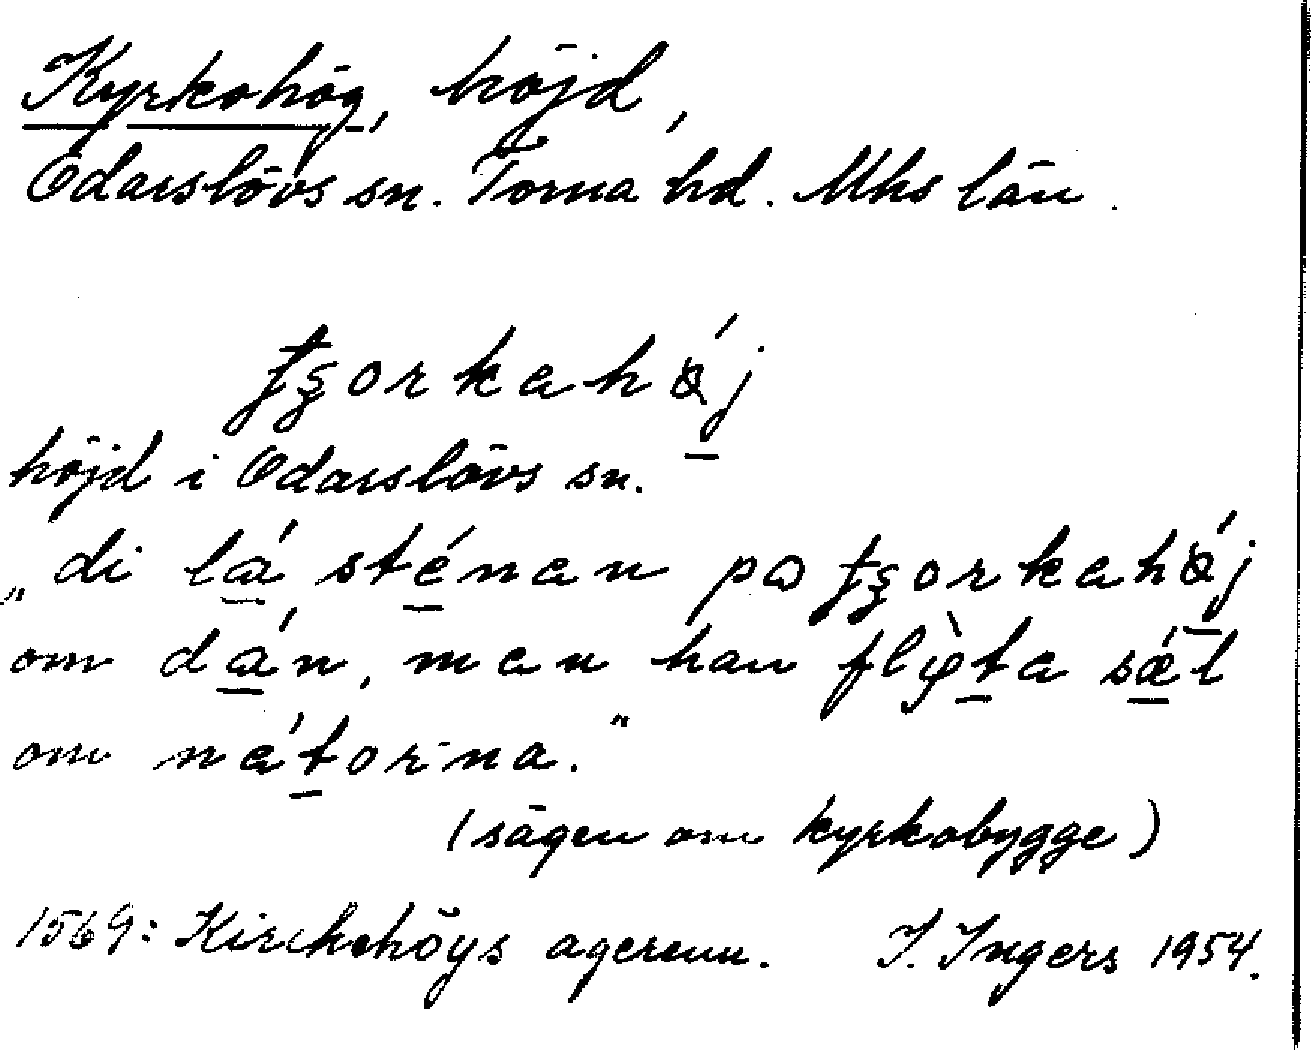 Kyrkohög, höjd,
Odarslövs sn. Torna hd. Mhs län.
ƫʂorkahǿj
höjd i Odarslövs sn.
„di lá sténan pɷ ƫʂorkahǿj
om dán, men han flỳta sǽl
om nátorina.”
(sägen om kyrkobygge)
1569: Kirchehöys agerenn. I. Ingers 1954.